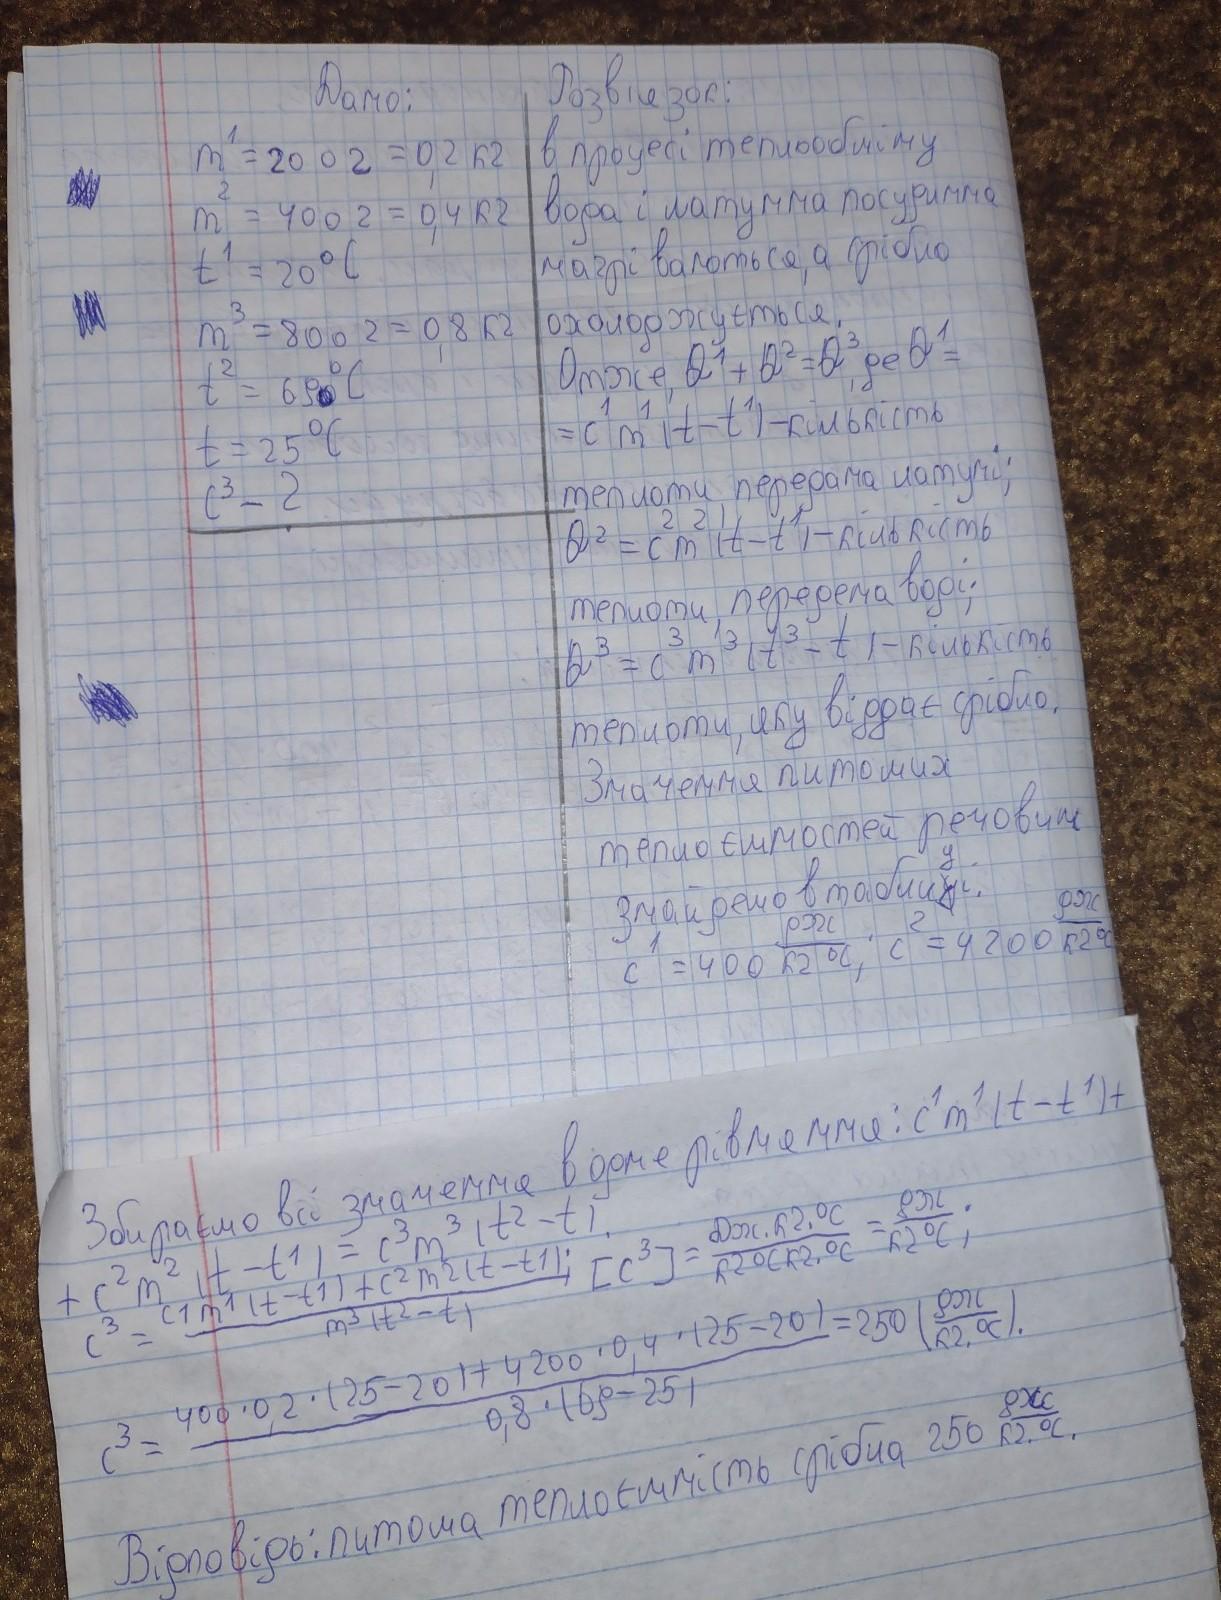 Дано:
m¹ = 200 г = 0,2 кг
m² = 400 г = 0,4 кг
t¹ = 20°C
m³ = 800 г = 0,8 кг
t² = 69°C
t = 25°C
c³ - ?
Розв'язок:
в процесі теплообміну
вода і латунна посудинна
нагріваються, а срібло
охолоджується.
Отже, Q¹ + Q² = Q³, де Q¹ =
= c¹m¹(t - t¹) - кількість
теплоти передана латуні;
Q² = c²m²(t - t¹) - кількість
теплоти, передена воді;
Q³ = c³m³(t³ - t) - кількість
теплоти, яку віддає срібло.
Значення питомих
теплоємностей речовин
знайдено в таблиці.
c¹ = 400 Дж/кг°C; c² = 4200 Дж/кг°C
Збираємо всі значення в одне рівняння: c¹m¹(t - t¹) +
+ c²m²(t - t1) = c³m³(t² - t).
c³ = c1m1(t-t1)+c²m²(t-t1)/m³(t²-t); [c³] = Дж.кг.°C/кг°Cкг.°C = Дж/кг°C;
c³ = 400·0,2·(25-20)+4200·0,4·(25-20)/0,8·(69-25) = 250 (Дж/кг.°C).
Відповідь: питома теплоємність срібла 250 Дж/кг.°C.